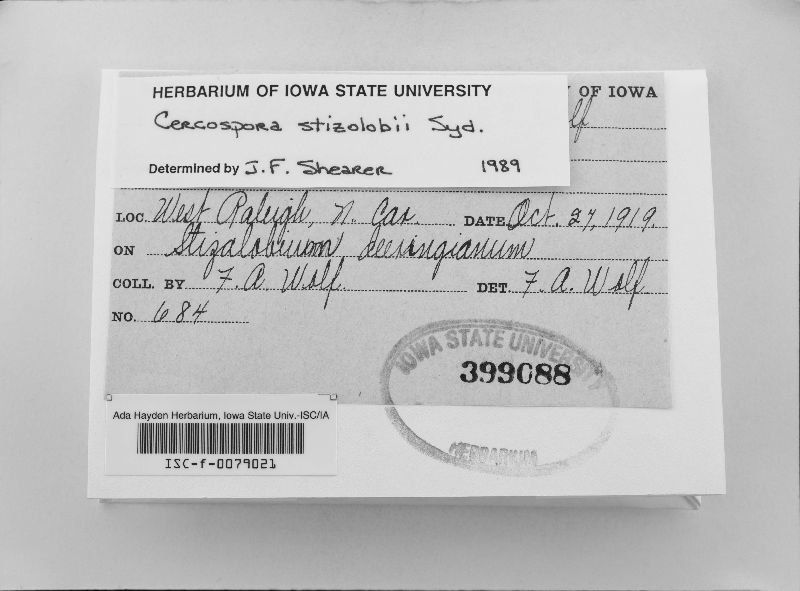 HERBARIUM OF IOWA STATE UNIVERSITY
Cercospora stizolobii Syd.
Determined by J.F. Shearer 1989
OF IOWA
lf
LOC. West Raleigh, N. Car. DATE Oct. 27, 1919.
ON Stizalobium deeringianum
COLL. BY F. A. Wolf. DET. F. A. Wolf
NO. 684
IOWA STATE UNIVERSITY
399088
HERBARIUM
Ada Hayden Herbarium, Iowa State Univ.-ISC/IA
ISC-f-0079021